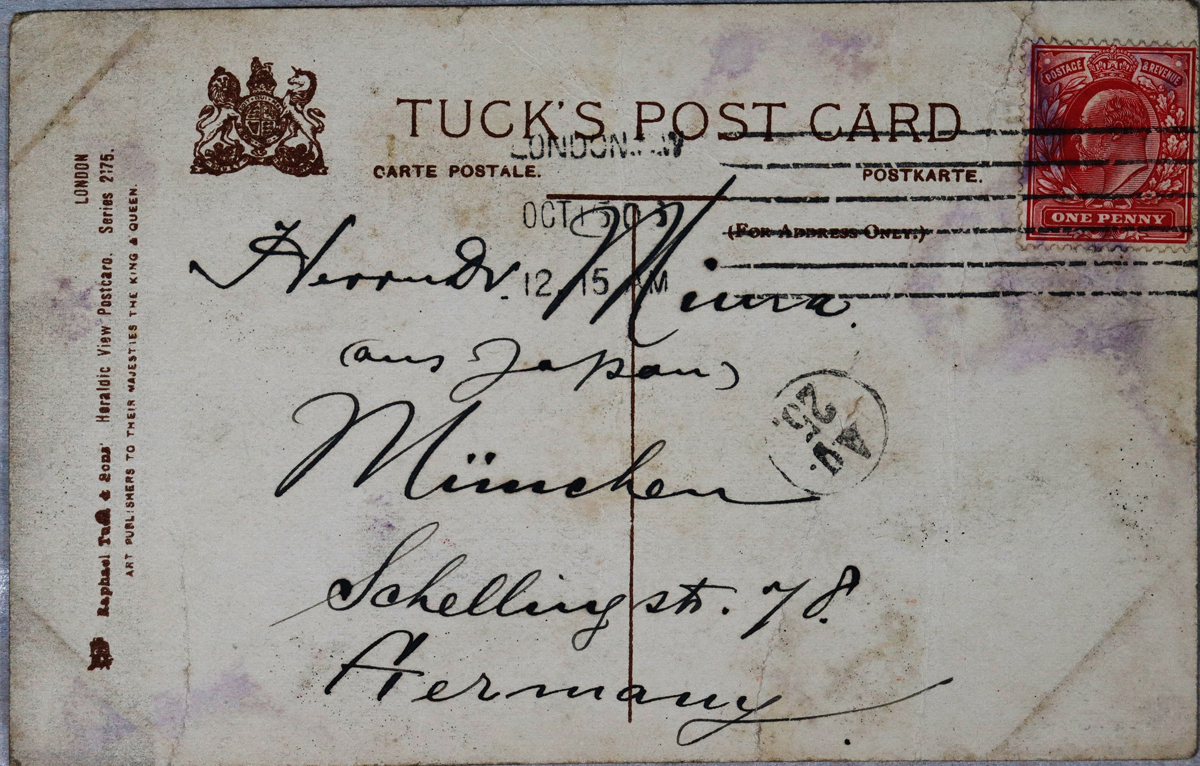 TUCK'S POST CARD
CARTE POSTALE.
POSTKARTE.
(FOR ADDRESS ONLY.)
POSTAGE & REVENUE
ONE PENNY
LONDON. N.W
OCT 15 0
12 15 AM
Herrn Dr. Miura.
(aus Japan)
München
Schellingstr. 78.
Germany
LONDON
Raphael Tuck & Sons' Heraldic View Postcard. Series 2175.
ART PUBLISHERS TO THEIR MAJESTIES THE KING & QUEEN.